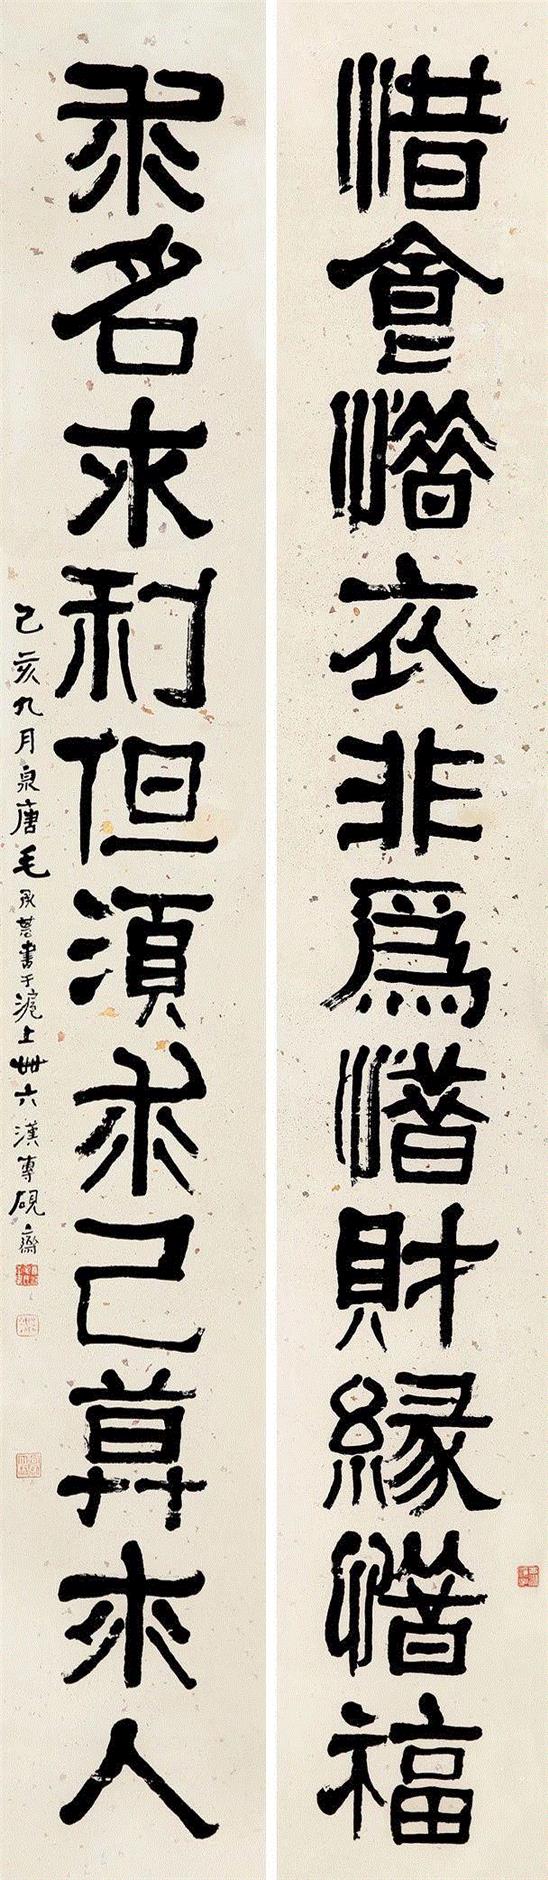 惜食惜衣非為惜財緣惜福
求名求利但須求己莫求人
己亥九月泉唐毛承基書于滬上卌六漢專硯齋